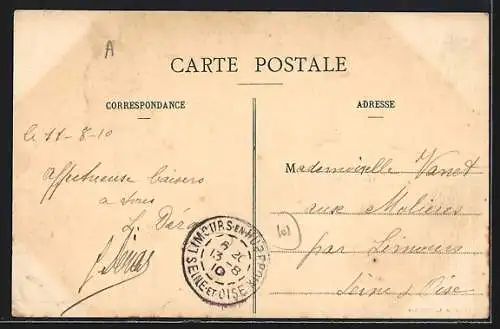 A
CARTE POSTALE
CORRESPONDANCE
ADRESSE
le 11-8-10
Affectueuse baisers
a tous
Mademoiselle Vanet
aux Molières
par Limours
Seine & Oise
LIMOURS-EN-HUREPOIX
13 -8
10
SEINE-ET-OISE